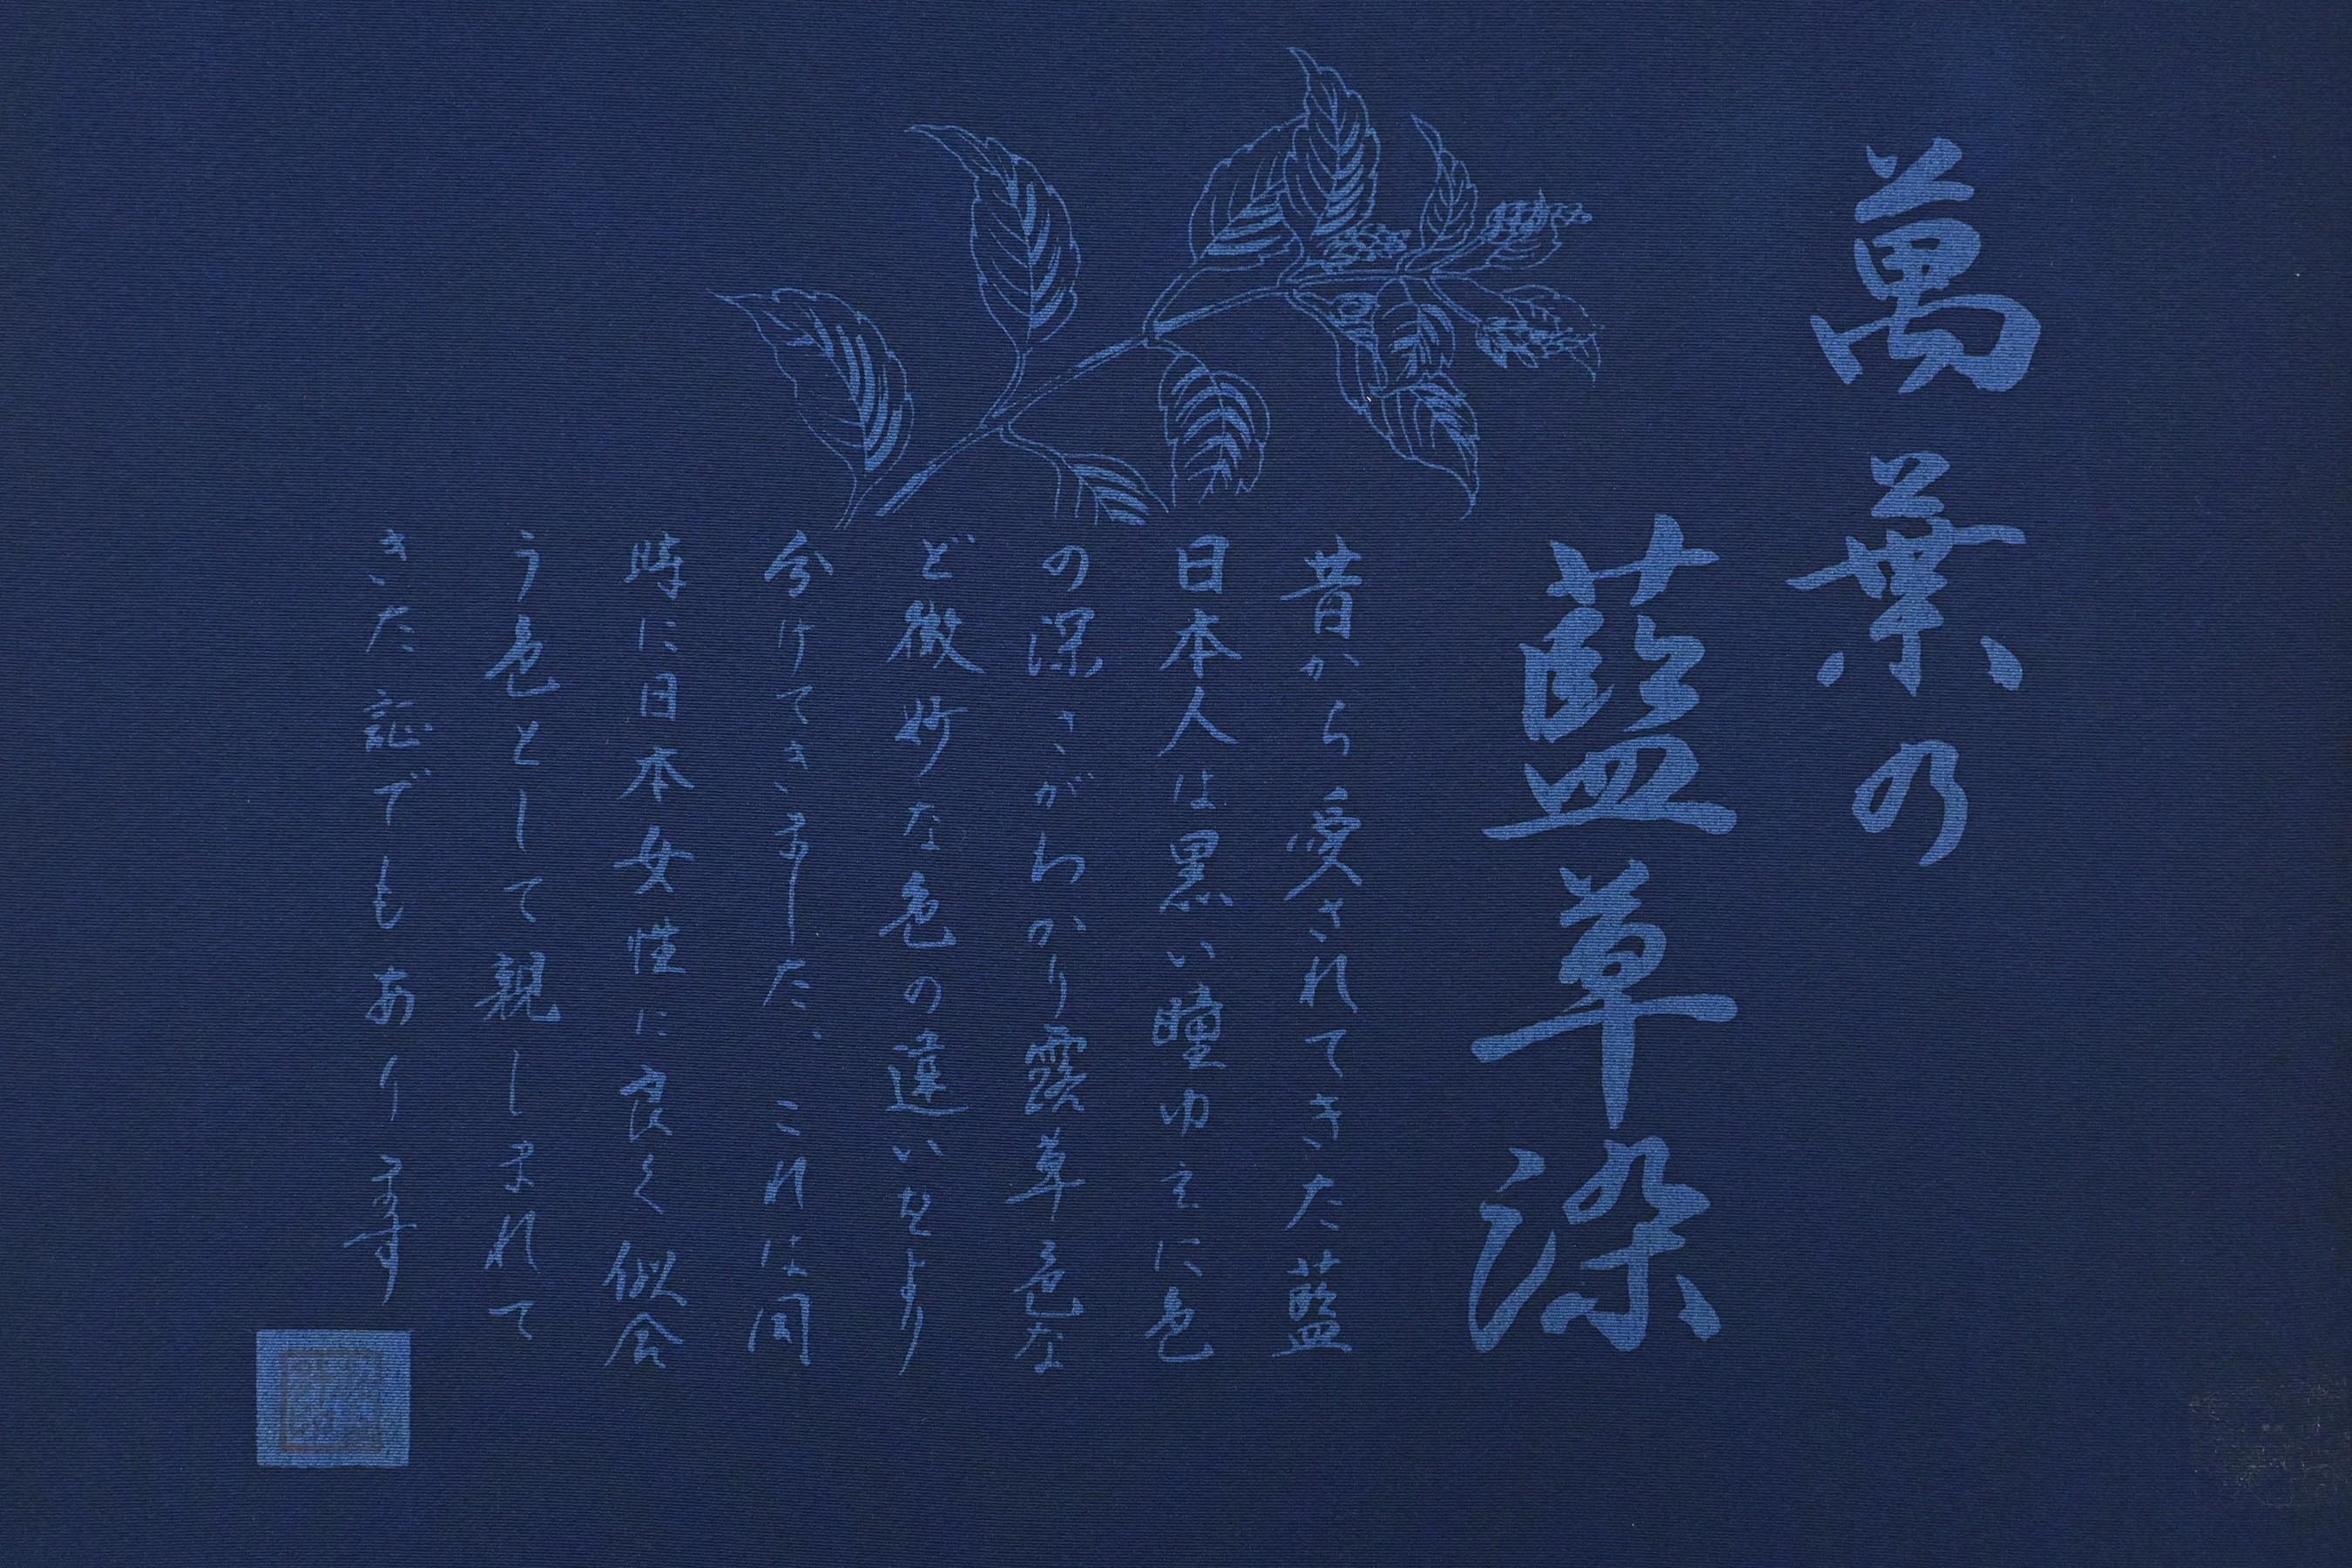 萬葉の
藍草染
昔から愛されてきた藍
日本人は黒い瞳ゆえに色
の深さがわかり露草色な
ど微妙な色の違いをより
分けてきました、これは同
時に日本女性に良く似合
う色として親しまれて
きた証でもあります